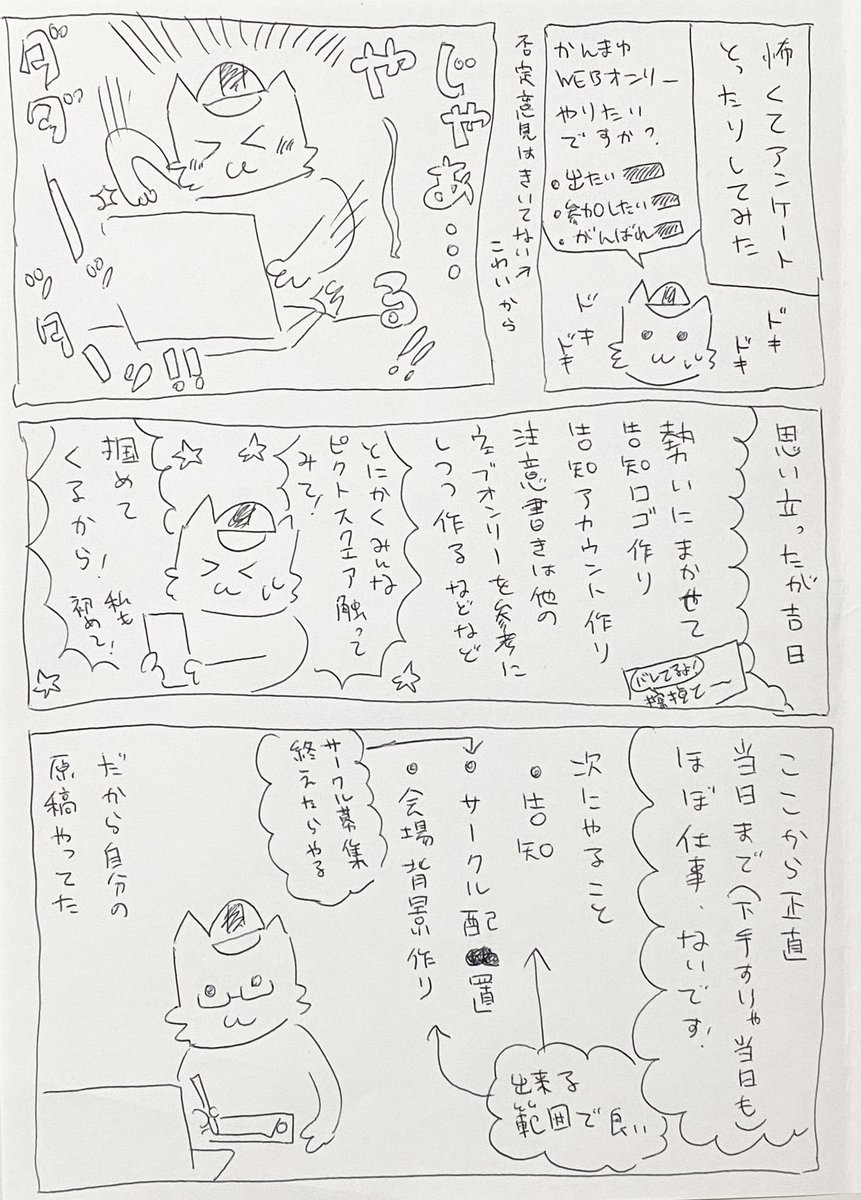 怖くてアンケート
とったりしてみた
かんまゆ
WEBオンリー
やりたい
ですか?
・出たい
・参加したい
・がんばれ
ドキ
ドキ
ドキ
ドキ
否定意見はきいてない↗
こわいから
じゃあ・・・
や〜る!!
ダダダッ!!
思い立ったが吉日
勢いにまかせて
告知ロゴ作り
告知アカウント作り
注意書きは他の
ウェブオンリーを参考に
しつつ作るなどなど
バレてるよ!
とにかくみんな
ピクトスクエア触って
みて!
掴めて
くるから!
私も
初めて!
ここから正直
当日まで(下手すりゃ当日も)
ほぼ仕事、ないです!
次にやること
・告知
・サークル配置
・会場背景作り
サークル募集
終えたらやる
出来る
範囲で良い
だから自分の
原稿やってた